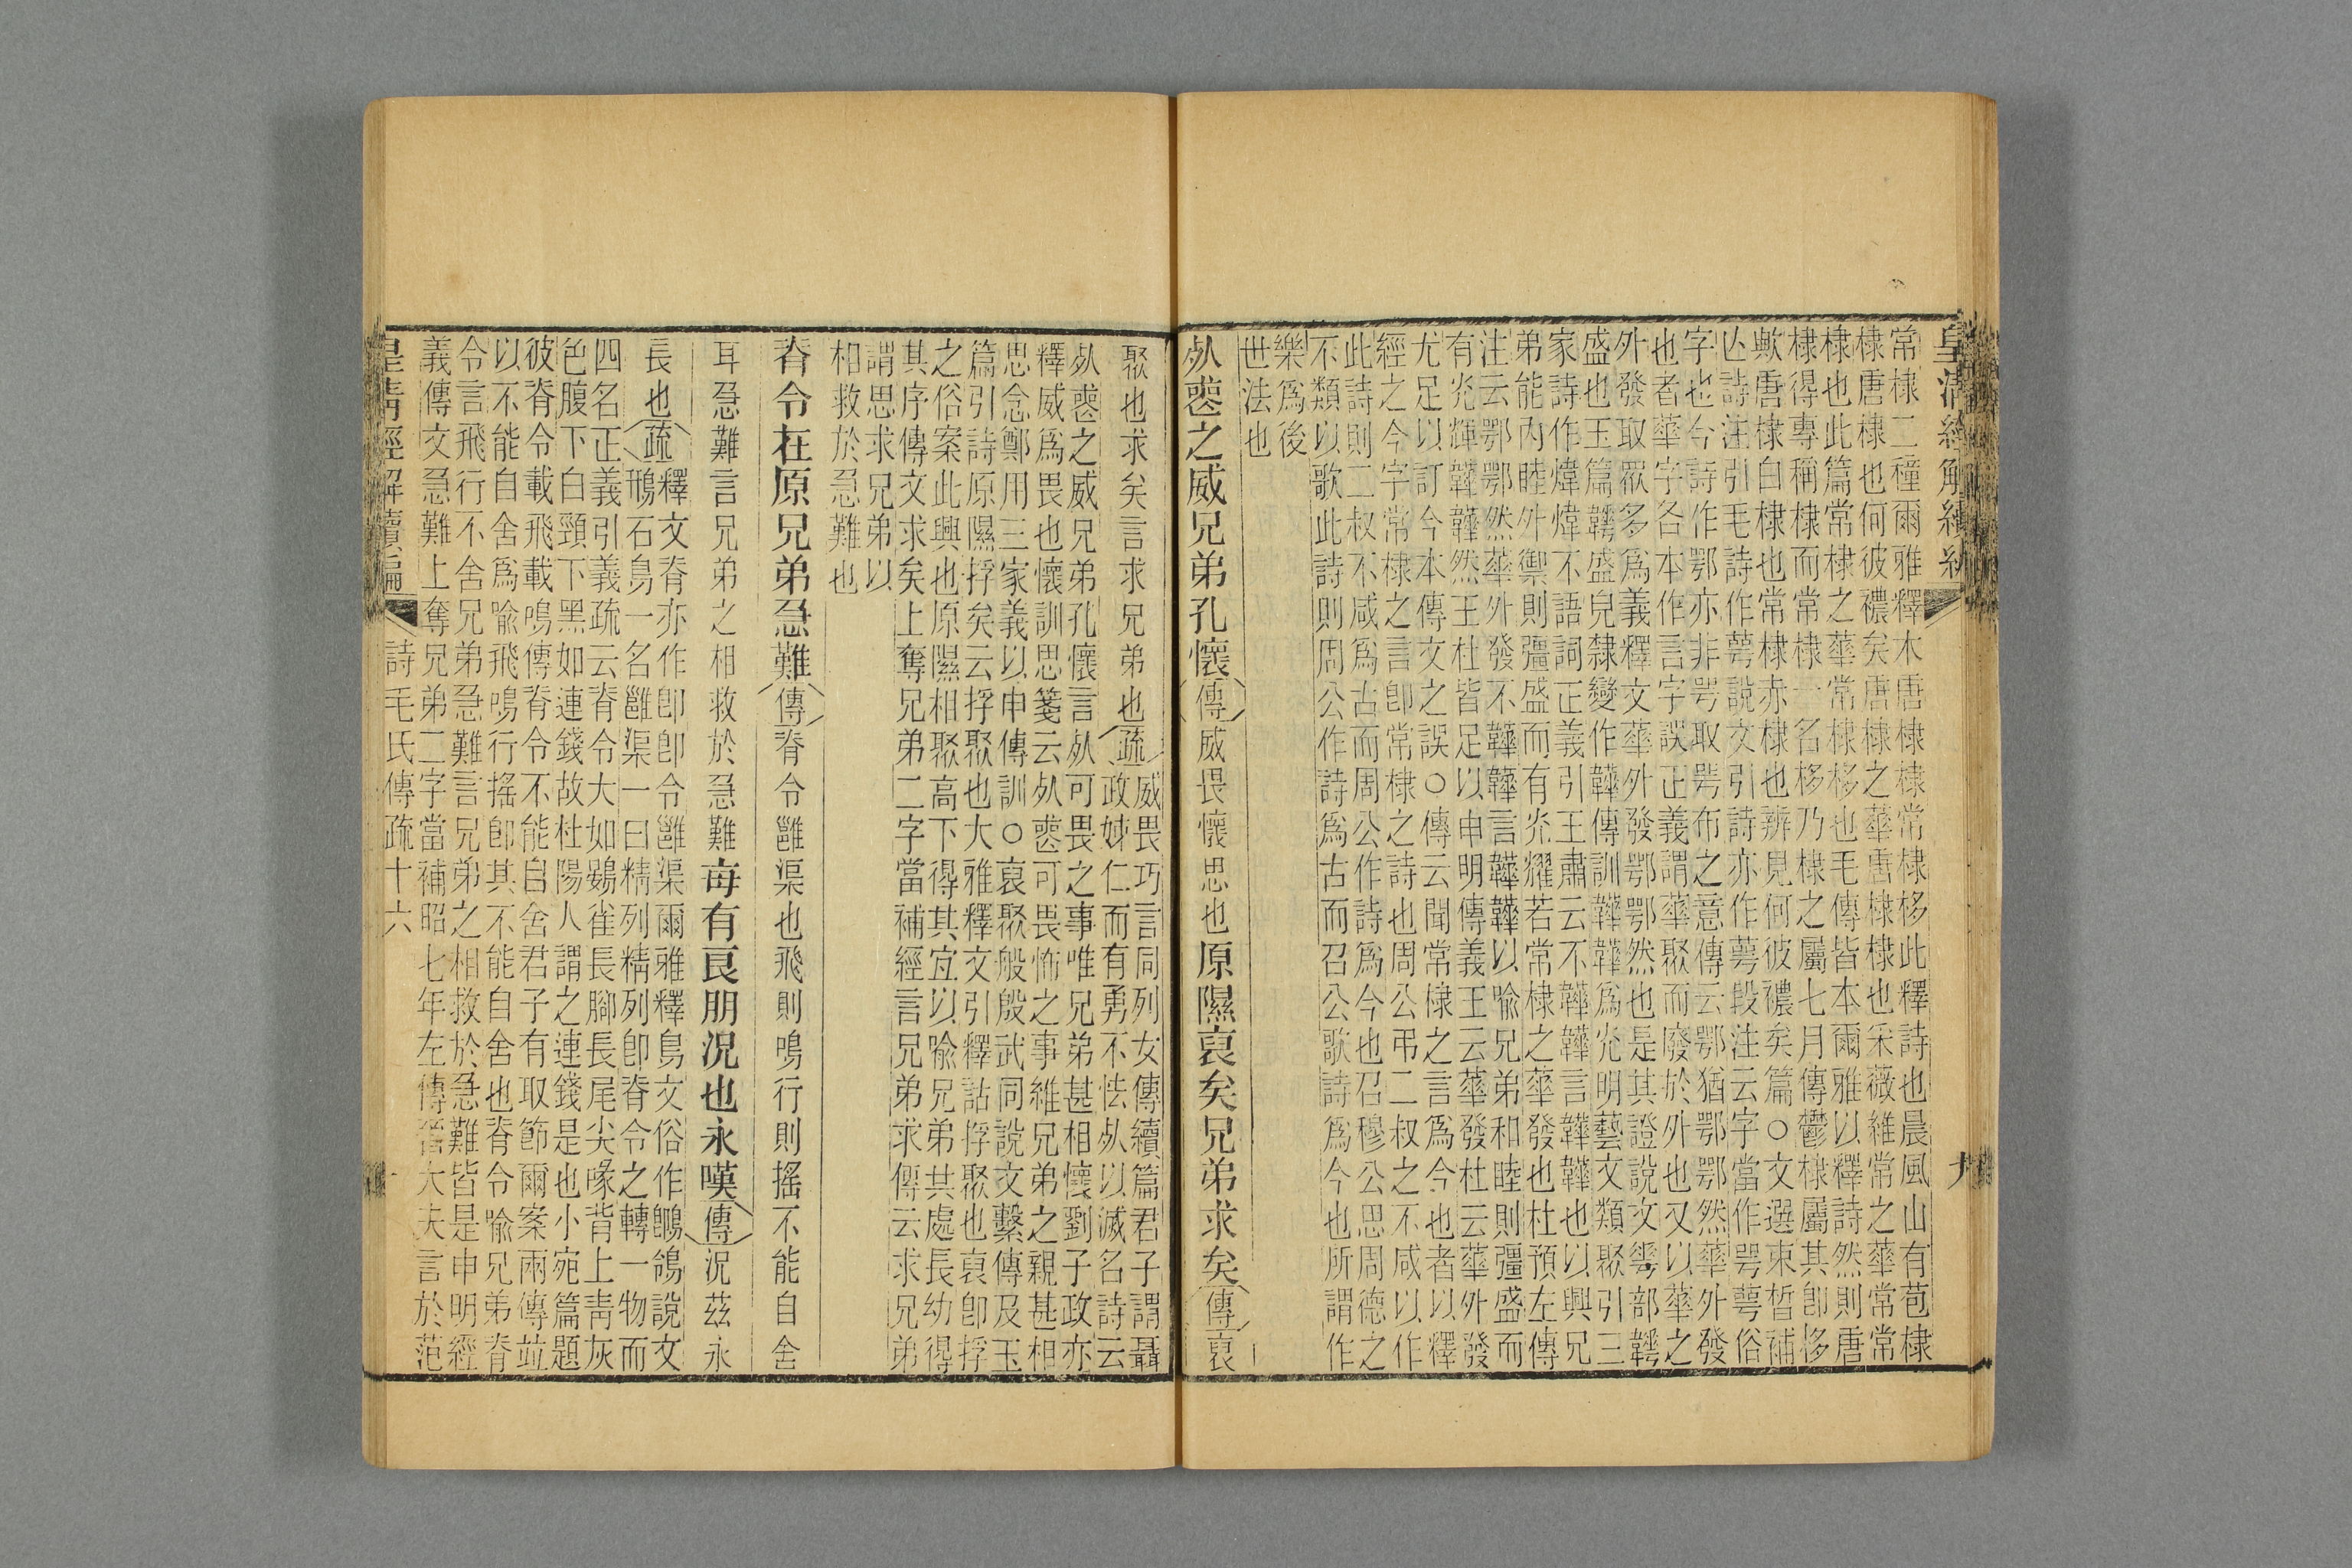 皇清經解續編
九
常棣二穜爾雅釋木唐棣棣常棣栘此釋詩也晨風山有苞棣
棣唐棣也何彼襛矣唐棣之華唐棣棣也采薇維常之華常常
棣也此篇常棣之華常棣栘也毛傳皆本爾雅以釋詩然則唐
棣得專稱棣而常棣一名栘乃棣之屬七月傳鬱棣屬其卽栘
歟唐棣白棣也常棣赤棣也辨見何彼襛矣篇○文選束晳補
亾詩注引毛詩作萼說文引詩亦作萼段注云字當作咢萼俗
字也今詩作鄂亦非咢取咢布之意傳云鄂猶鄂鄂然華外發
也者華字各本作言字誤正義謂華聚而廢於外也又以華之
外發取眾多爲義釋文華外發鄂鄂然也是其證說文䔢部韡
盛也玉篇韡盛皃隸變作韡傳訓韡韡爲光明藝文類聚引三
家詩作煒煒不語詞正義引王肅云不韡韡言韡韡也以興兄
弟能內睦外禦則彊盛而有光耀若常棣之華發也杜預左傳
注云鄂鄂然華外發不韡韡言韡韡以喩兄弟和睦則彊盛而
有光輝韡韡然王杜皆足以申明傳義王云華發杜云華外發
尤足以訂今本傳文之誤○傳云聞常棣之言爲今也者以釋
經之今字常棣之言卽常棣之詩也周公弔二叔之不咸以作
此詩則二叔不咸爲古而周公作詩爲今也召穆公思周德之
不類以歌此詩則周公作詩爲古而召公歌詩爲今也所謂作
樂爲後
世法也
𣦸喪之威兄弟孔懷傳威畏懷思也原隰裒矣兄弟求矣傳裒
聚也求矣言求兄弟也疏威畏巧言同列女傳續篇君子謂聶
政姊仁而有勇不怯𣦸以滅名詩云
𣦸喪之威兄弟孔懷言𣦸可畏之事唯兄弟甚相懷劉子政亦
釋威爲畏也懷訓思箋云𣦸喪可畏怖之事維兄弟之親甚相
思念鄭用三家義以申傳訓○裒聚般殷武同說文繫傳及玉
篇引詩原隰捊矣云捊聚也大雅釋文引釋詁捊聚也裒卽捊
之俗案此興也原隰相聚高下得其宜以喩兄弟其處長幼得
其序傳文求矣上奪兄弟二字當補經言兄弟求傳云求兄弟
謂思求兄弟以
相救於急難也
脊令在原兄弟急難傳脊令雝渠也飛則鳴行則搖不能自舍
耳急難言兄弟之相救於急難每有良朋況也永嘆傳況茲永
長也疏釋文脊亦作卽卽令雝渠爾雅釋鳥文俗作鶺鴒說文
䳭石鳥一名雝渠一曰精列精列卽脊令之轉一物而
四名正義引義疏云脊令大如鷃雀長腳長尾尖喙背上靑灰
色腹下白頸下黑如連錢故杜陽人謂之連錢是也小宛篇題
彼脊令載飛載鳴傳脊令不能自舍君子有取節爾案兩傳竝
以不能自舍爲喩飛鳴行搖卽其不能自舍也脊令喩兄弟脊
令言飛行不舍兄弟急難言兄弟之相救於急難皆是申明經
義傳文急難上奪兄弟二字當補昭七年左傳晉大夫言於范
皇淸經解續編
詩毛氏傳疏十六